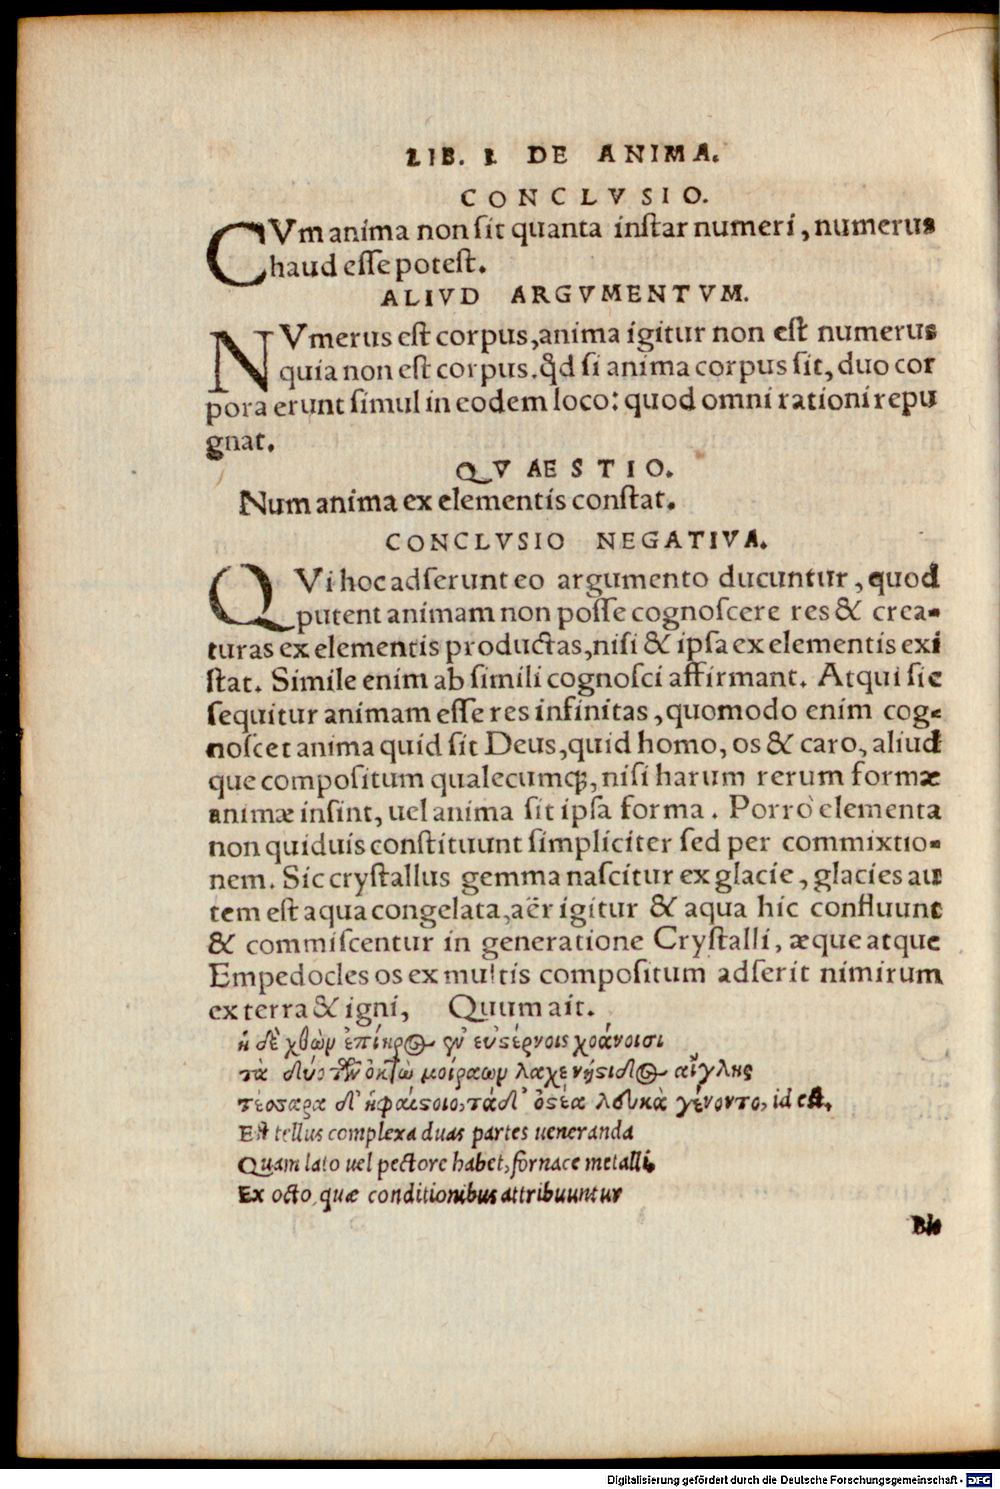 LIB. I DE ANIMA.
CONCLVSIO.
CVm anima non sit quanta instar numeri, numerus
haud esse potest.
ALIVD ARGVMENTVM.
NVmerus est corpus, anima igitur non est numerus
quia non est corpus. qd si anima corpus sit, duo cor
pora erunt simul in eodem loco: quod omni rationi repu
gnat.
QVAESTIO.
Num anima ex elementis constat.
CONCLVSIO NEGATIVA.
QVi hoc adserunt eo argumento ducuntur, quod
putent animam non posse cognoscere res & crea-
turas ex elementis productas, nisi & ipsa ex elementis exi
stat. Simile enim ab simili cognosci affirmant. Atqui sic
sequitur animam esse res infinitas, quomodo enim cog-
noscet anima quid sit Deus, quid homo, os & caro, aliud
que compositum qualecumq;, nisi harum rerum formæ
animæ insint, uel anima sit ipsa forma. Porrò elementa
non quiduis constituunt simpliciter sed per commixtio-
nem. Sic crystallus gemma nascitur ex glacie, glacies au
tem est aqua congelata, aër igitur & aqua hic confluunt
& commiscentur in generatione Crystalli, æque atque
Empedocles os ex multis compositum adserit nimirum
ex terra & igni, Quum ait.
ἡ δὲ χθὼν ἐπίηρος ἐν εὐστέρνοις χοάνοισι
τὰ δύο τῶν ὀκτὼ μοίραων λαχε νήστιδος αἴγλης
τέσσαρα δ' ἡφαίστοιο, τὰ δ' ὀστέα λευκὰ γένοντο, id est,
Est tellus complexa duas partes ueneranda
Quam lato uel pectore habet, fornace metalli,
Ex octo quæ conditionibus attribuuntur
Bis